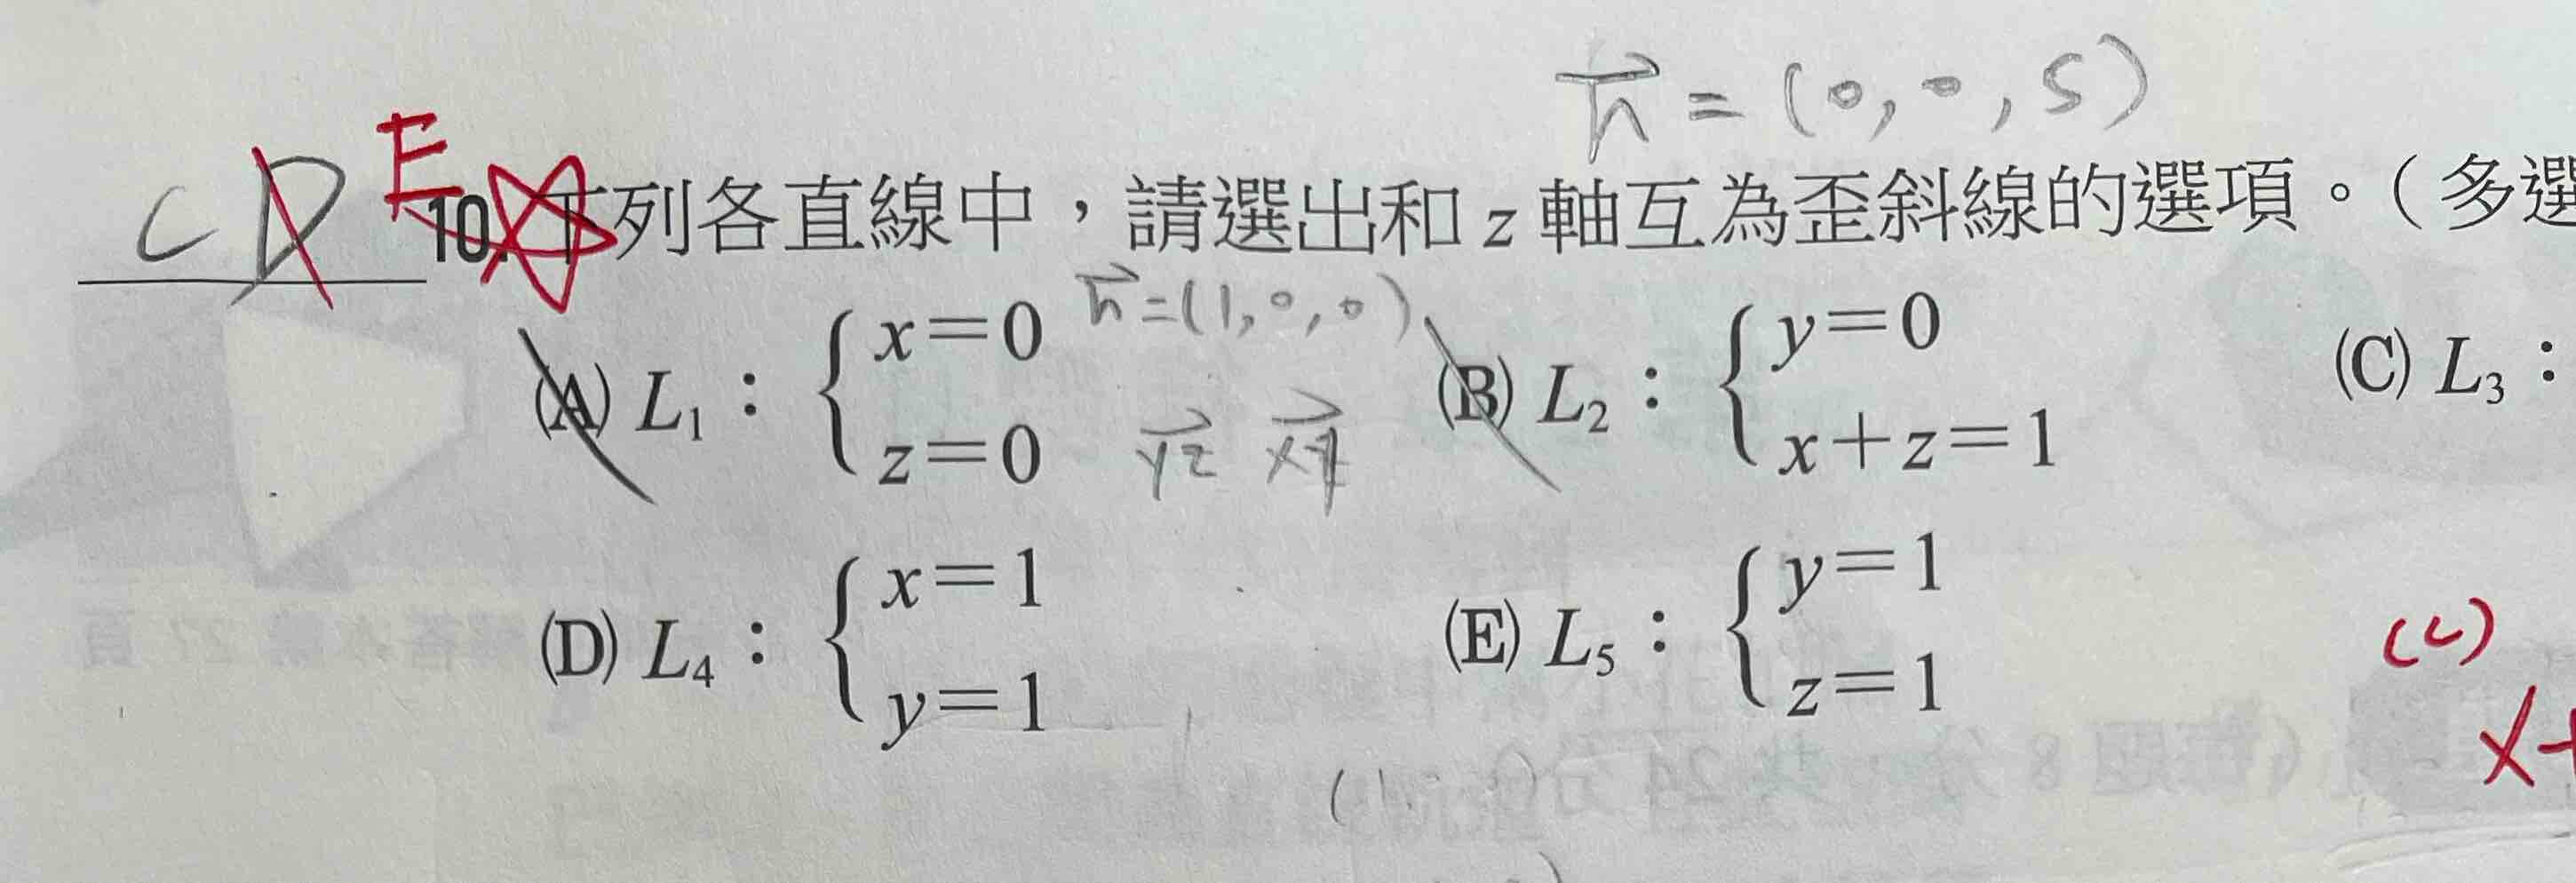 n⃗ = (0, 0, 5)
C D E
10. 下列各直線中，請選出和 z 軸互為歪斜線的選項。（多選
n⃗ = (1, 0, 0)
(A) L₁：{ x＝0
z＝0
yz xy
(B) L₂：{ y＝0
x＋z＝1
(C) L₃：
(D) L₄：{ x＝1
y＝1
(E) L₅：{ y＝1
z＝1
(C)
x+